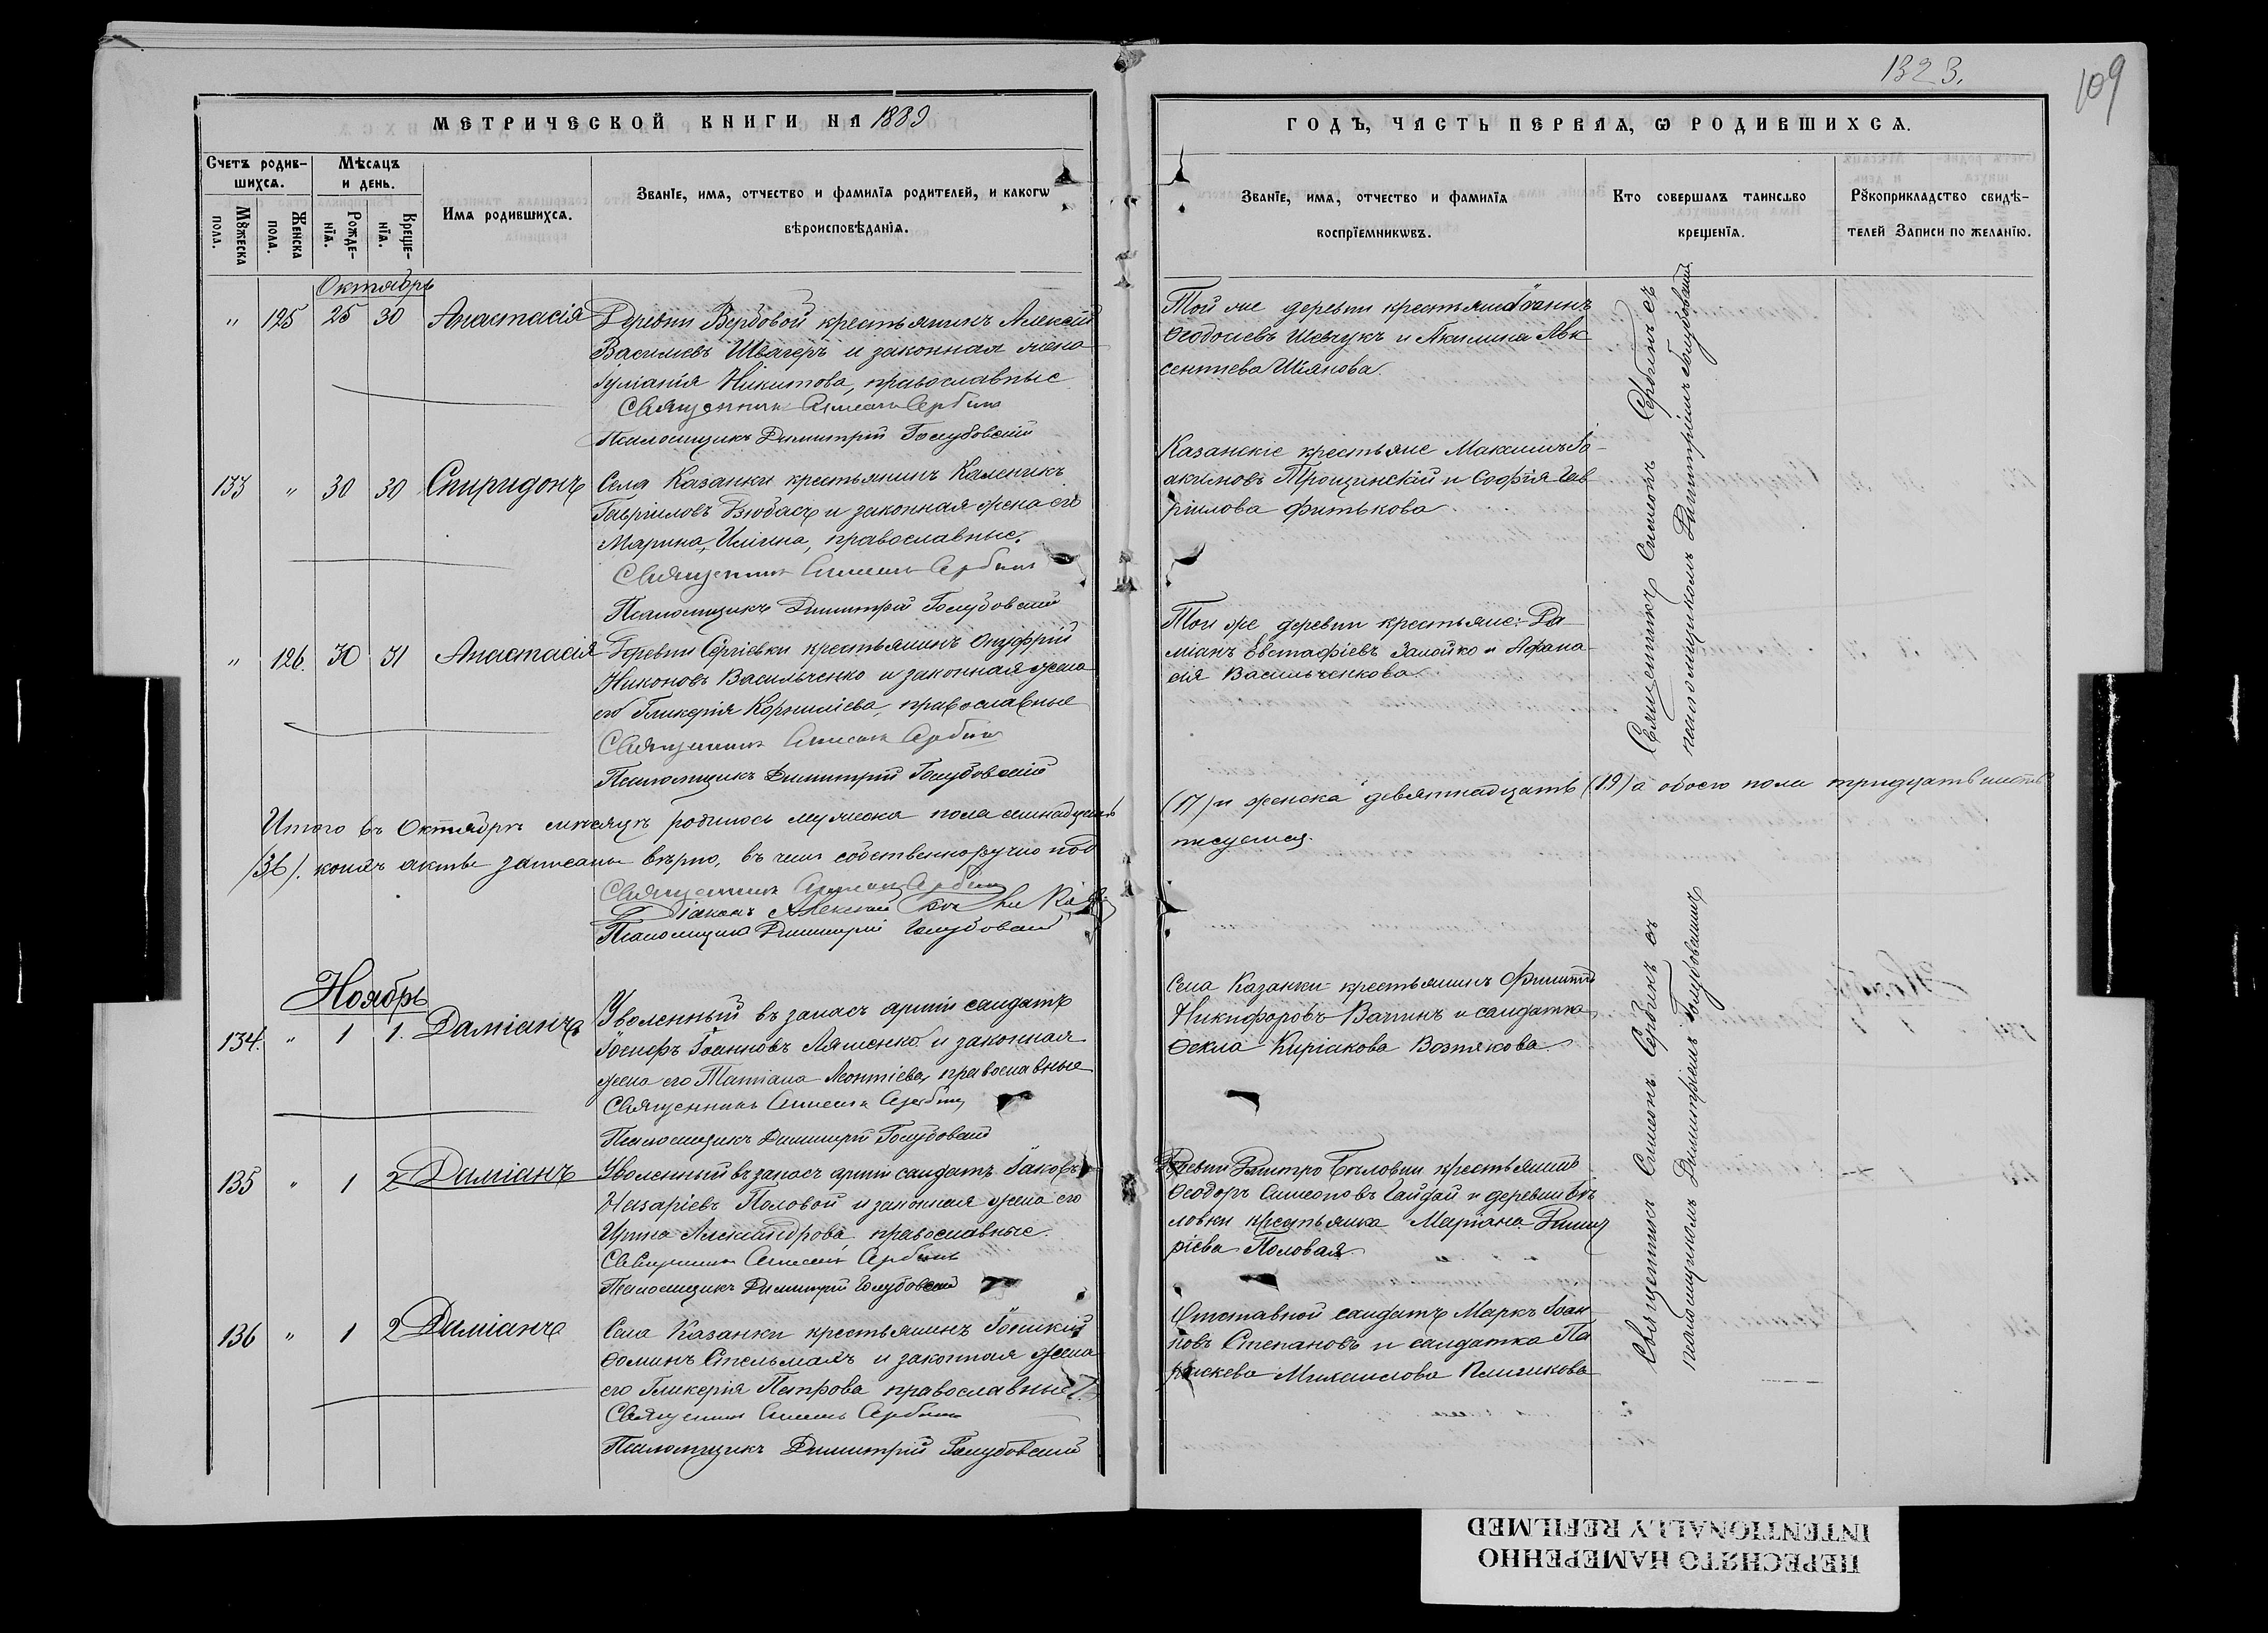 МЕТРИЧЕСКОЙ КНИГИ НА 1889
Счетъ родив-
шихся.
Мѣсяцъ
и день.
Мꙋжеска
пола.
Женска
пола.
Рожде-
нїя.
Креще-
нїя.
Имя родившихся.
Званїе, имя, отчество и фамилїя родителей, и какогѡ
вѣроисповѣданїя.
Октябрь
" 125 25 30 Анастасія
Деревни Вербовой крестьянинъ Алексѣй
Васильевъ Швагеръ и законная жена
Іуліанія Никитова, православные
Священникъ Симеонъ Сербинъ
Псаломщикъ Димитрій Голубовскій
133 " 30 30 Спиридонъ
Села Казанки крестьянинъ Каленикъ
Гавріиловъ Дзюбасъ и законная жена его
Марина Ильина, православные.
Священникъ Симеонъ Сербинъ
Псаломщикъ Димитрій Голубовскій
" 126. 30 31 Анастасія
Деревни Сергіевки крестьянинъ Онуфрій
Никоновъ Васильченко и законная жена
его Гликерія Корниліева, православные
Священникъ Симеонъ Сербинъ
Псаломщикъ Димитрій Голубовскій
Итого въ Октябрѣ мѣсяцѣ родилось мужеска пола семнадцать
/36/. коихъ акты записаны вѣрно, въ чемъ собственноручно под
Священникъ Симеонъ Сербинъ
Діаконъ Алексѣй
Псаломщикъ Димитрій Голубовскій
Ноябрь
134. " 1 1. Даміанъ
Уволенный въ запасъ арміи солдатъ
Іосифъ Іоанновъ Ляшенко и законная
жена его Татіана Леонтіева, православные
Священникъ Симеонъ Сербинъ
Псаломщикъ Димитрій Голубовскій
135 " 1 2 Даміанъ
Уволенный въ запасъ арміи солдатъ Іаковъ
Назаріевъ Половой и законная жена его
Ирина Александрова православные.
Священникъ Симеонъ Сербинъ
Псаломщикъ Димитрій Голубовскій
136 " 1 2 Даміанъ
Села Казанки крестьянинъ Іоникій
Ѳоминъ Стельмахъ и законная жена
его Гликерія Петрова православные
Священникъ Симеонъ Сербинъ
Псаломщикъ Димитрій Голубовскій
1323.
109
ГОДЪ, ЧАСТЬ ПЕРВАЯ, Ѡ РОДИВШИХСЯ.
Званїе, имя, отчество и фамилїя
воспрїемникѡвъ.
Кто совершалъ таинство
крещенїя.
Рꙋкоприкладство свидѣ-
телей записи по желанїю.
Той же деревни крестьяне Іоаннъ
Ѳеодосіевъ Шевчукъ и Акилина Авк
сентіева Шіянова.
Казанскіе крестьяне Максимъ Іо-
акимовъ Трощинскій и Софія Гав
ріилова Фитькова
Той же деревни крестьяне: Да
міанъ Евстафіевъ Запойко и Афана
сія Васильченкова
Священникъ Симеонъ Сербинъ съ
псаломщикомъ Димитріемъ Голубовскимъ.
(17) и женска девятнадцать (19) а обоего пола тридцать шесть
писуемся.
Села Казанки крестьянинъ Филиппъ
Никифоровъ Вачинъ и солдатка
Ѳекла Киріакова Вознякова.
Деревни Дмитро Бѣловки крестьянинъ
Ѳеодоръ Симеоновъ Гайдай и деревни Бѣ
ловки крестьянка Маріана Димит
ріева Половая.
Отставной солдатъ Маркъ Іоан
новъ Степановъ и солдатка Па
раскева Михаилова
Священникъ Симеонъ Сербинъ съ
псаломщикомъ Димитріемъ Голубовскимъ
ПЕРЕСНЯТО НАМЕРЕННО
INTENTIONALLY REFILMED